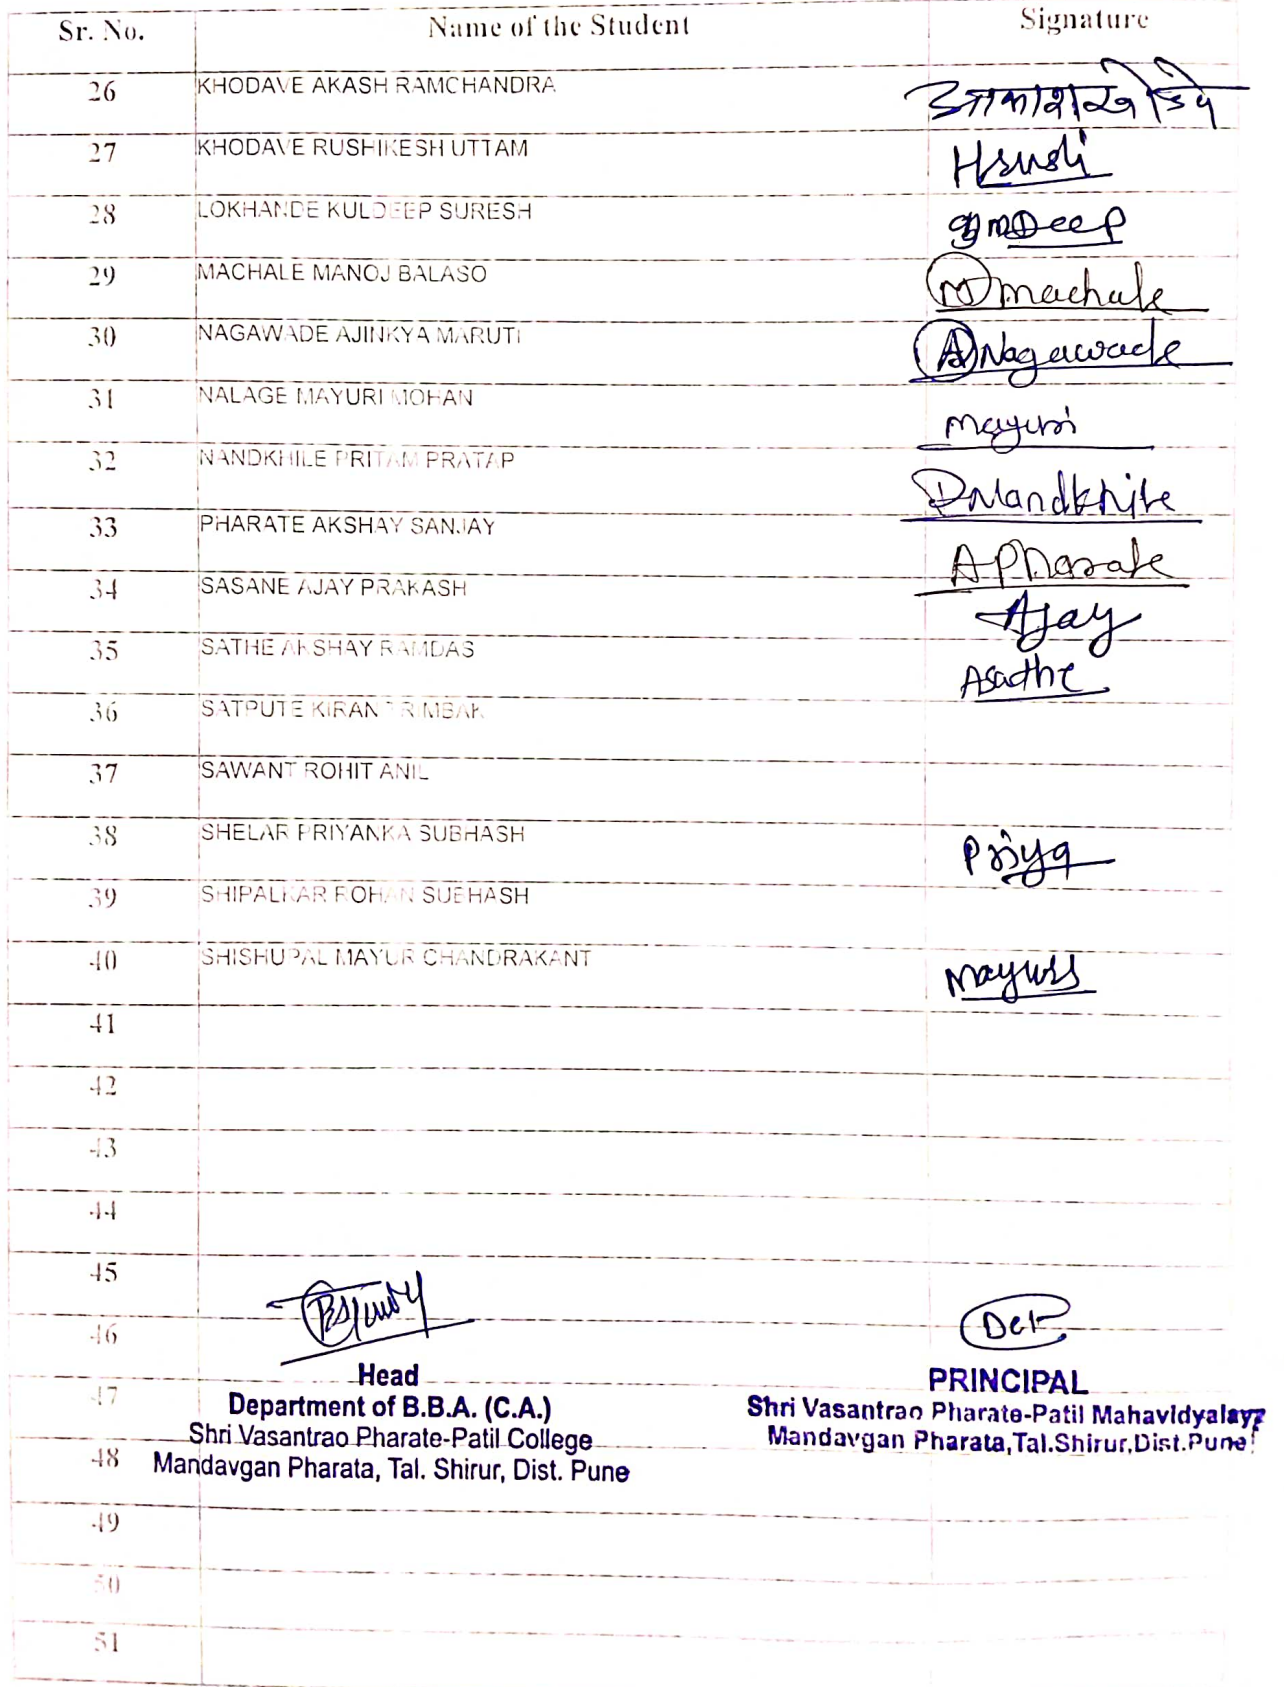 Sr. No. Name of the Student Signature
26 KHODAVE AKASH RAMCHANDRA आकाश खोडवे
27 KHODAVE RUSHIKESH UTTAM
28 LOKHANDE KULDEEP SURESH
29 MACHALE MANOJ BALASO M machale
30 NAGAWADE AJINKYA MARUTI A Nagawade
31 NALAGE MAYURI MOHAN mayuri
32 NANDKHILE PRITAM PRATAP PNandkhile
33 PHARATE AKSHAY SANJAY A Pharate
34 SASANE AJAY PRAKASH Ajay
35 SATHE AKSHAY RAMDAS Asathe
36 SATPUTE KIRAN TRIMBAK
37 SAWANT ROHIT ANIL
38 SHELAR PRIYANKA SUBHASH Priya
39 SHIPALKAR ROHAN SUBHASH
40 SHISHUPAL MAYUR CHANDRAKANT
41
42
43
44
45
46
Head PRINCIPAL
47
Department of B.B.A. (C.A.) Shri Vasantrao Pharate-Patil Mahavidyalay
Shri Vasantrao Pharate-Patil College Mandavgan Pharata,Tal.Shirur,Dist.Pune
48
Mandavgan Pharata, Tal. Shirur, Dist. Pune
49
50
51